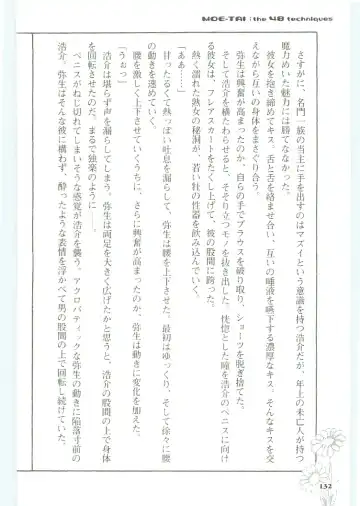 MOE-TAI : the 48 techniques
さすがに、名門一族の当主に手を出すのはマズイという意識を持つ浩介だが、年上の未亡人が持つ
魔力めいた魅力には勝てなかった。
彼女を抱き締めてキス。舌と舌を絡ませ合い、互いの唾液を嚥下する濃厚なキス。そんなキスを交
えながら互いの身体をまさぐり合う。
弥生は興奮が高まったのか、自らの手でブラウスを破り取り、ショーツを脱ぎ捨てた。
そして浩介を横たわらせると、そそり立つモノを抜き出した。恍惚とした瞳を浩介のペニスに向け
る彼女は、フレアスカートをたくし上げて、彼の股間に跨った。
「ああ……」
熱く潤れた熟女の秘洞が、若い牡の性器を飲み込んでいく。
甘ったるくて熱っぽい吐息を漏らして、弥生は腰を上下させた。最初はゆっくり、そして徐々に腰
の動きを速めていく。
腰を激しく上下させていくうちに、さらに興奮が高まったのか、弥生は動きに変化を加えた。
「うおっ」
浩介は堪らず声を漏らしてしまう。弥生は両足を大きく広げたかと思うと、浩介の股間の上で身体
を回転させたのだ。まるで独楽のように――。
ペニスがねじ切れてしまいそうな感覚が浩介を襲う。アクロバティックな弥生の動きに陥落寸前の
浩介。弥生はそんな彼に構わず、酔ったような表情を浮かべて男の股間の上で回転し続けていた。
132